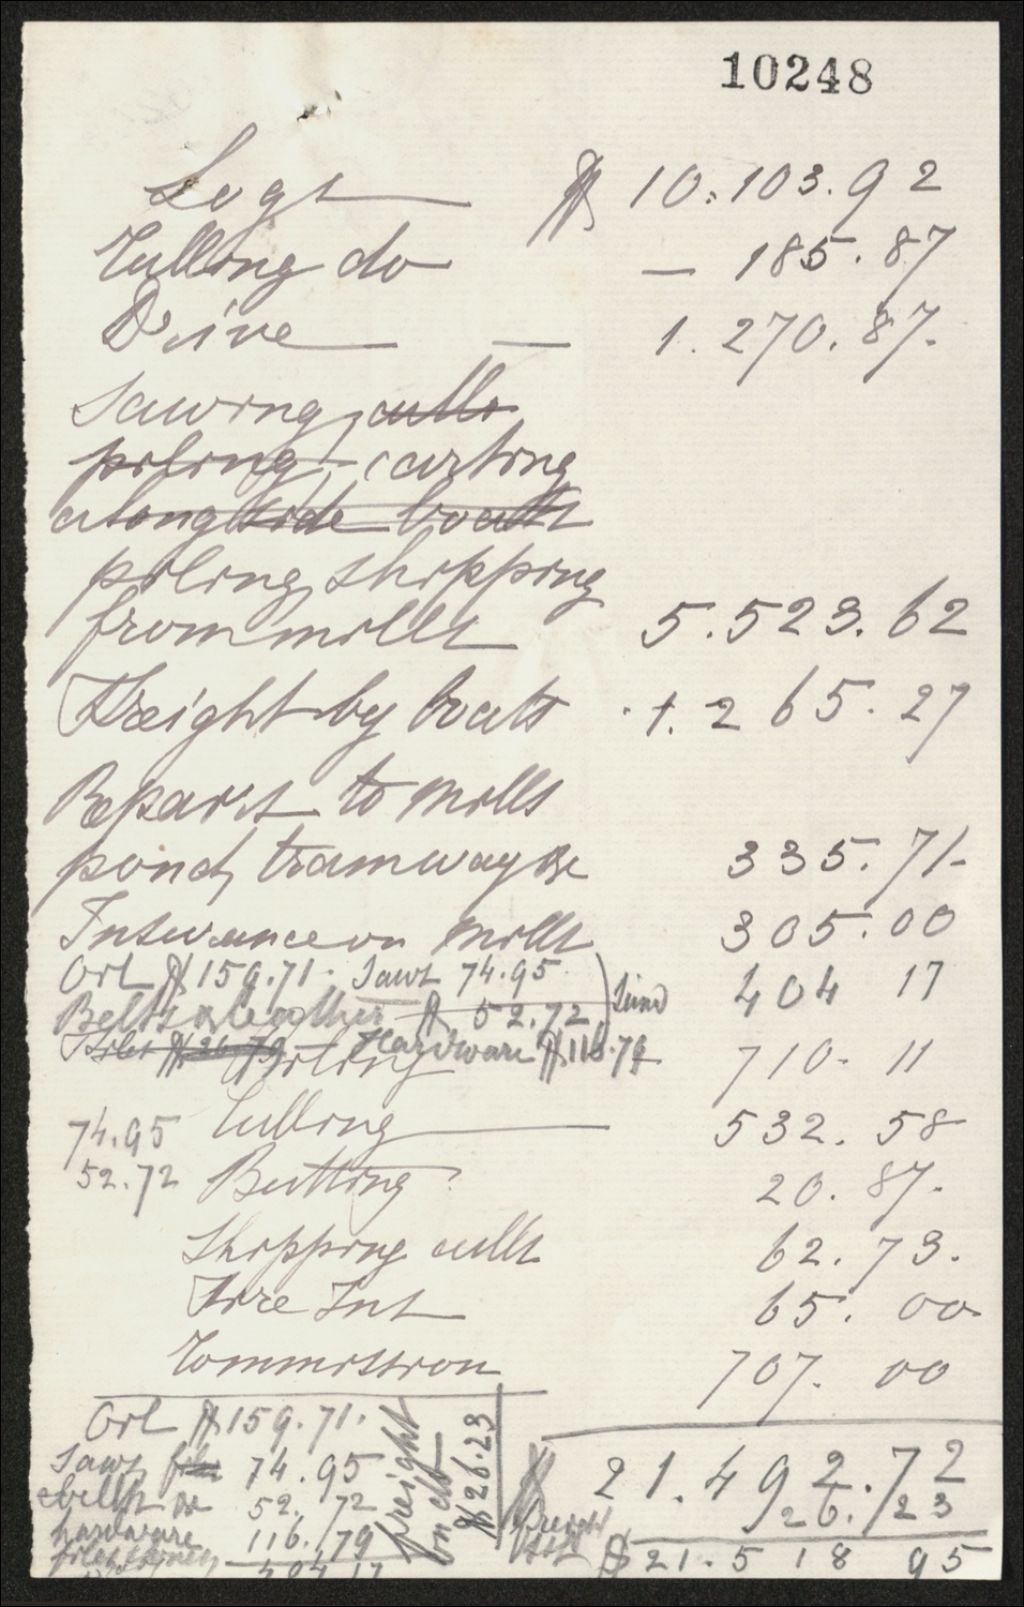 10248
Logs $ 10.103.92
Culling do — 185.87
Drive — 1.270.87
Sawing, culls
piling, carting
alongside boats
piling, shipping
from mills 5.523.62
Freight by boats 1.265.27
Repairs to mills
pond, tramway &c 335.71
Insurance on mills 305.00
Oil $159.71. Saws 74.95 404 17
Belts & leather $ 52.72
Files $26.79 Hardware $116.79
Piling 710. 11
Culling 532. 58
74.95
52.72 Butting 20. 87.
Shipping culls 62. 73.
Fire Ins 65. 00
Commission 707. 00
Oil $159.71.
Saws, files 74.95
belts &c 52.72
hardware 116.79
files
404 17
freight on do $26.23
$ 21.492.72
Freight 26.23
$21.518 95